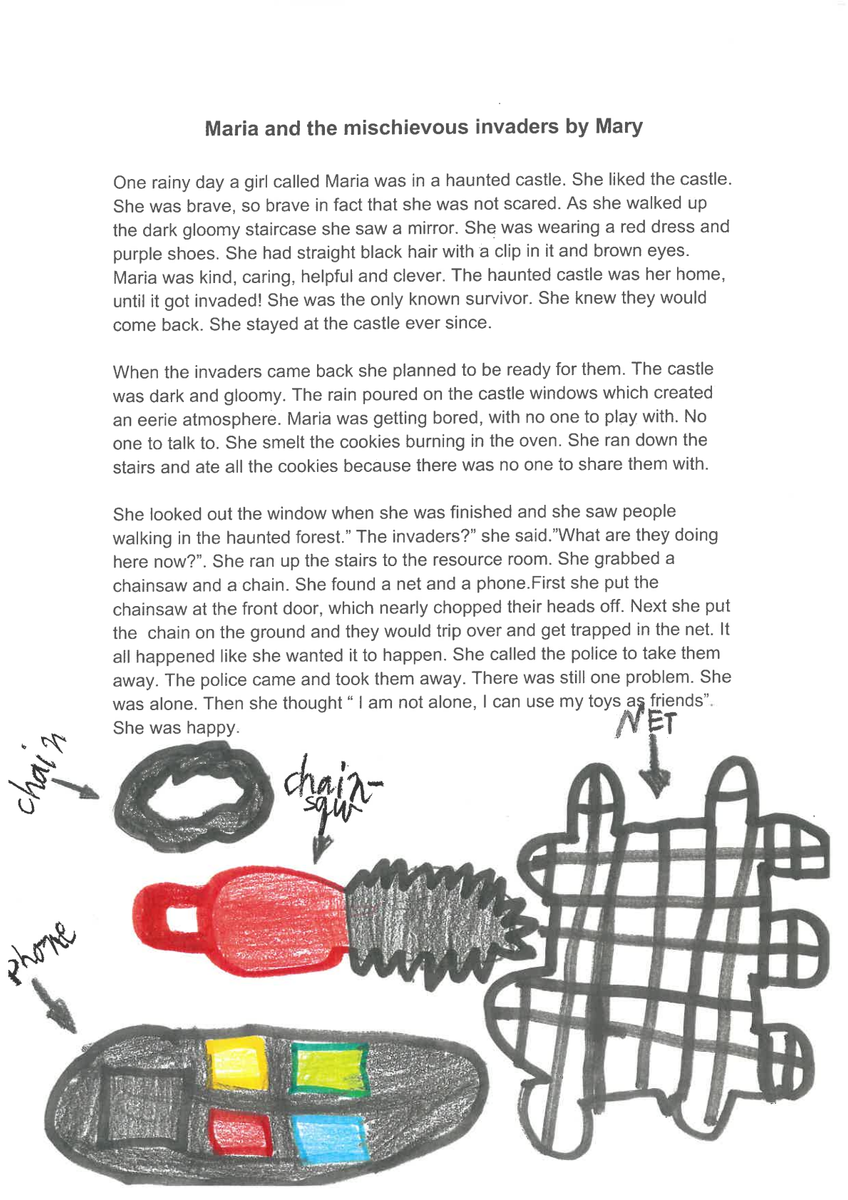 Maria and the mischievous invaders by Mary
One rainy day a girl called Maria was in a haunted castle. She liked the castle.
She was brave, so brave in fact that she was not scared. As she walked up
the dark gloomy staircase she saw a mirror. She was wearing a red dress and
purple shoes. She had straight black hair with a clip in it and brown eyes.
Maria was kind, caring, helpful and clever. The haunted castle was her home,
until it got invaded! She was the only known survivor. She knew they would
come back. She stayed at the castle ever since.
When the invaders came back she planned to be ready for them. The castle
was dark and gloomy. The rain poured on the castle windows which created
an eerie atmosphere. Maria was getting bored, with no one to play with. No
one to talk to. She smelt the cookies burning in the oven. She ran down the
stairs and ate all the cookies because there was no one to share them with.
She looked out the window when she was finished and she saw people
walking in the haunted forest.” The invaders?” she said.”What are they doing
here now?”. She ran up the stairs to the resource room. She grabbed a
chainsaw and a chain. She found a net and a phone.First she put the
chainsaw at the front door, which nearly chopped their heads off. Next she put
the  chain on the ground and they would trip over and get trapped in the net. It
all happened like she wanted it to happen. She called the police to take them
away. The police came and took them away. There was still one problem. She
was alone. Then she thought “ I am not alone, I can use my toys as friends”.
She was happy.
NET
chain
chain-
saw
phone